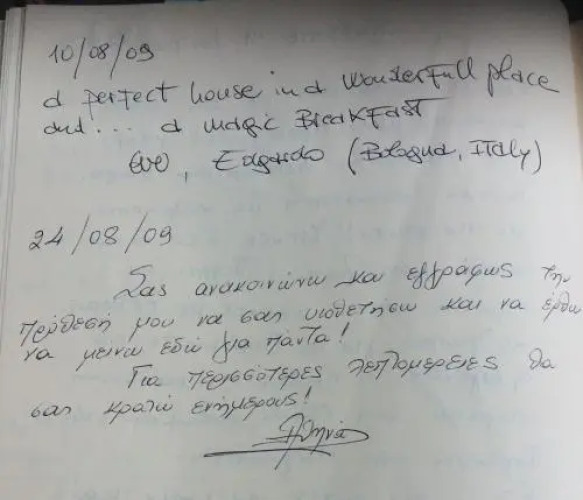 10/08/09
A perfect house in a wonderfull place
and... a magic BreakFast
Eve, Edgardo (Bologna, ITaly)
24/08/09
Σας ανακοινώνω και εγγράφως την
πρόθεσή μου να σας υιοθετήσω και να έρθω
να μείνω εδώ για πάντα!
Για περισσότερες λεπτομέρειες θα
σας κρατώ ενήμερους!
Αθηνά